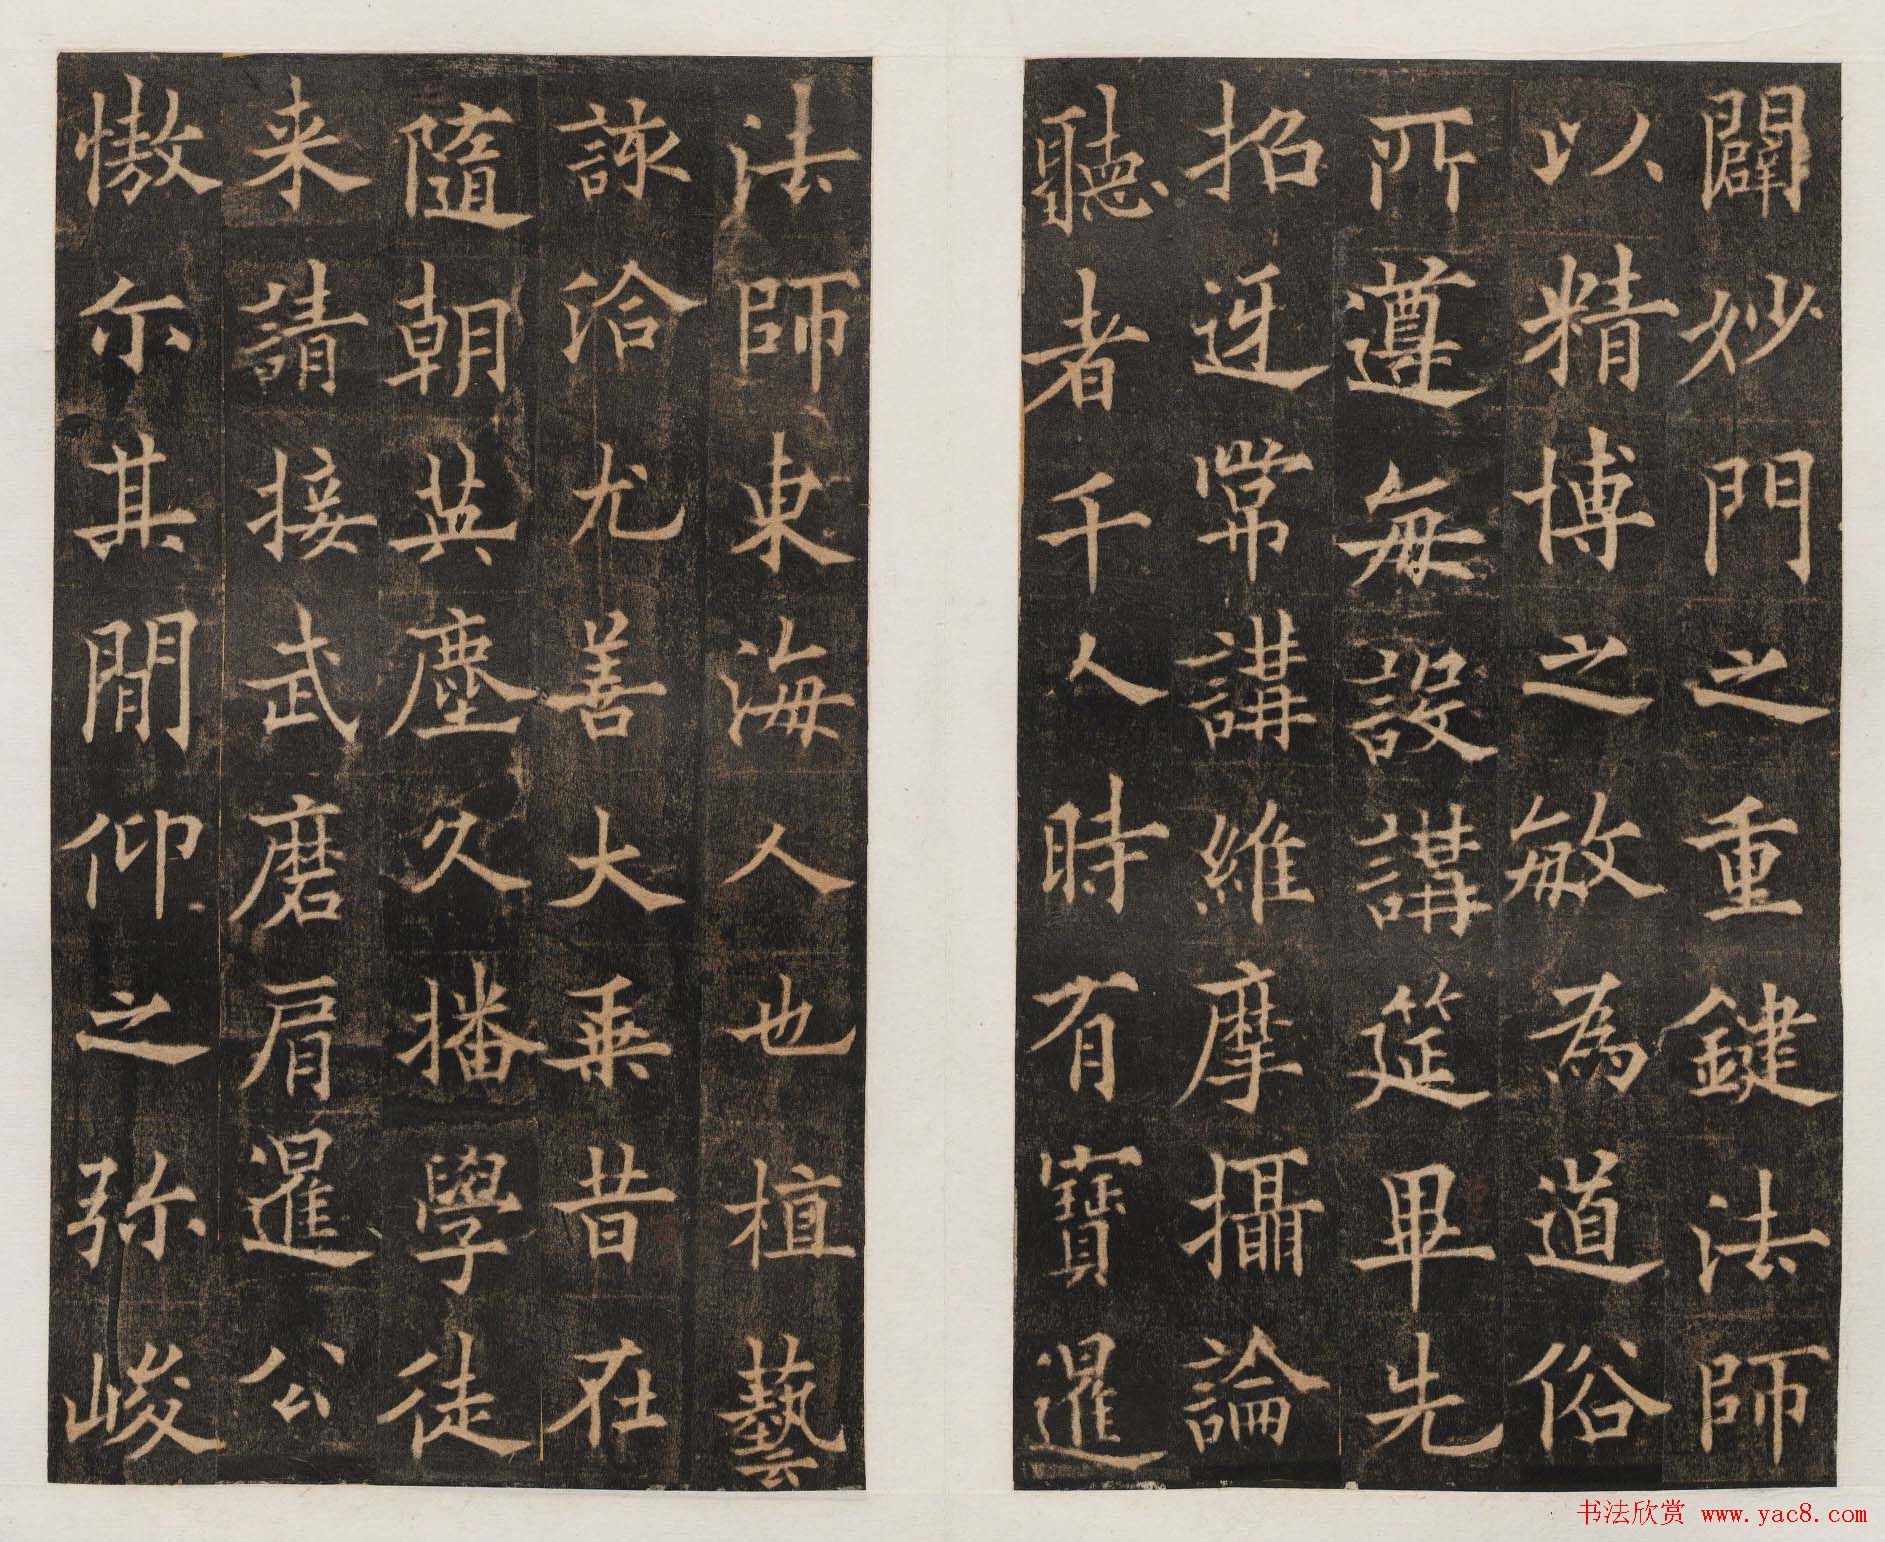 闢妙門之重鍵法師
以精博之敏為道俗
所遵每設講筵畢先
招迓常講維摩攝論
聽者千人時有寶暹
法師東海人也植藝
該洽尤善大乘昔在
隋朝英塵久播學徒
来請接武磨肩暹公
憿尒其間仰之弥峻
书法欣赏 www.yac8.com